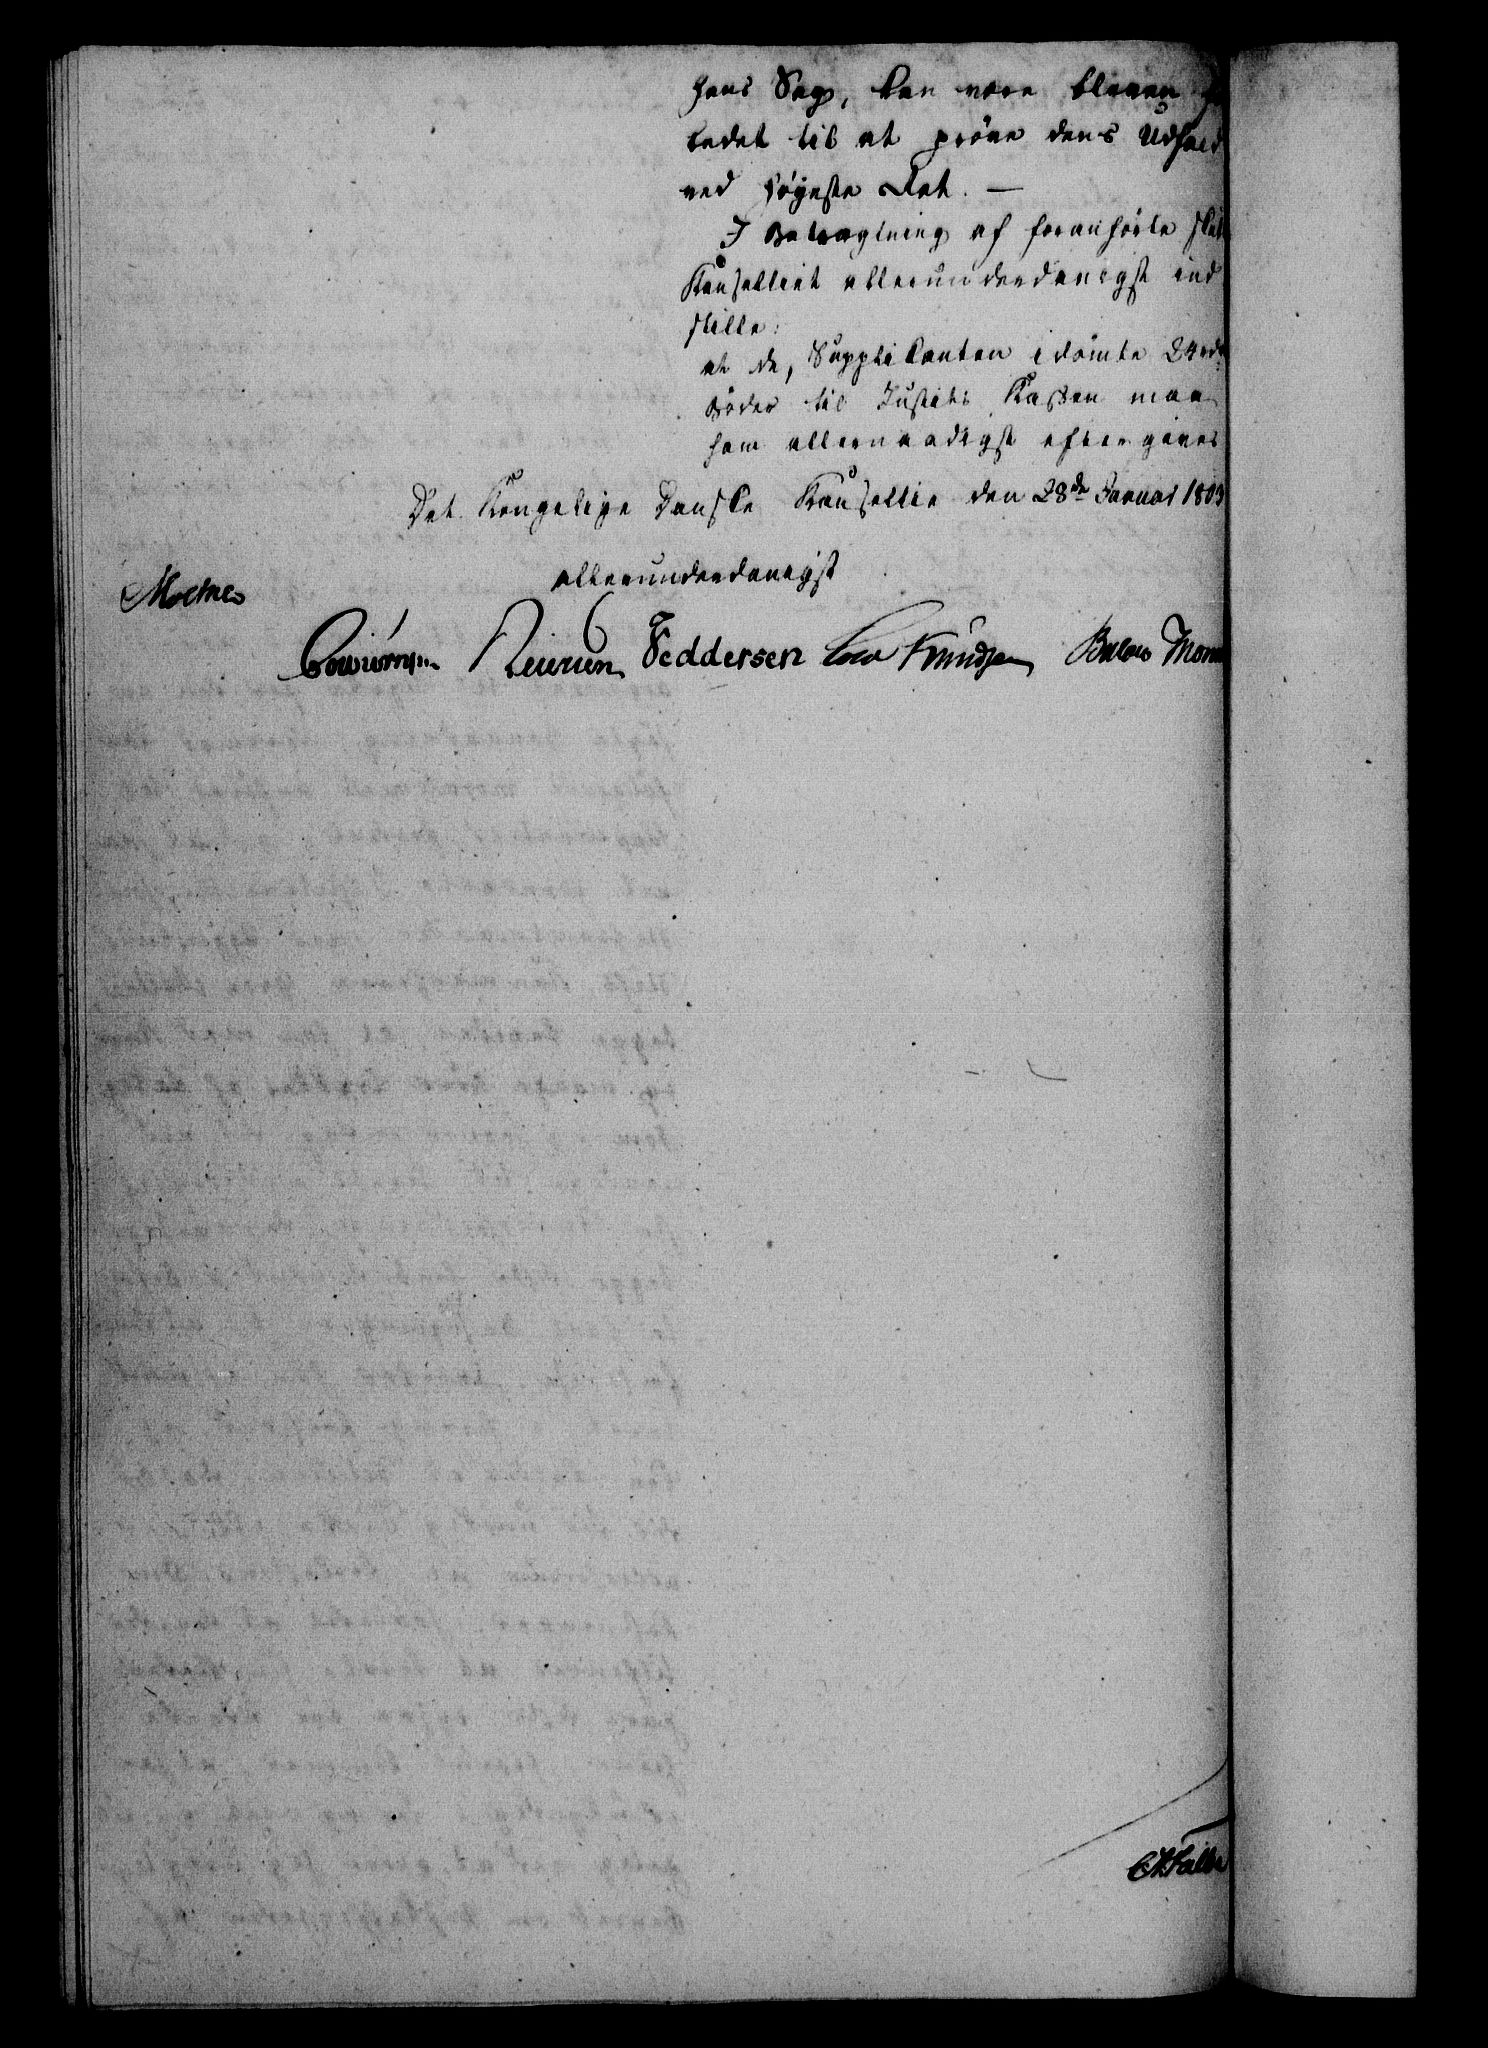 hans Sag, kan være bleven for
ledet til at prøve dens Udfald
ved Høyeste Ret. —
I Betragtning af foranførte skal
Kanselliet allerunderdanigst ind
stille:
at de, Supplikanten idømte 24 rdr
Bøder til Justits Kassen maae
ham allernaadigst eftergives
Det Kongelige Danske Kanselie den 28de Januar 1803
allerunderdanigst
Moltke
Feddersen Knudsen Bülow Monrad